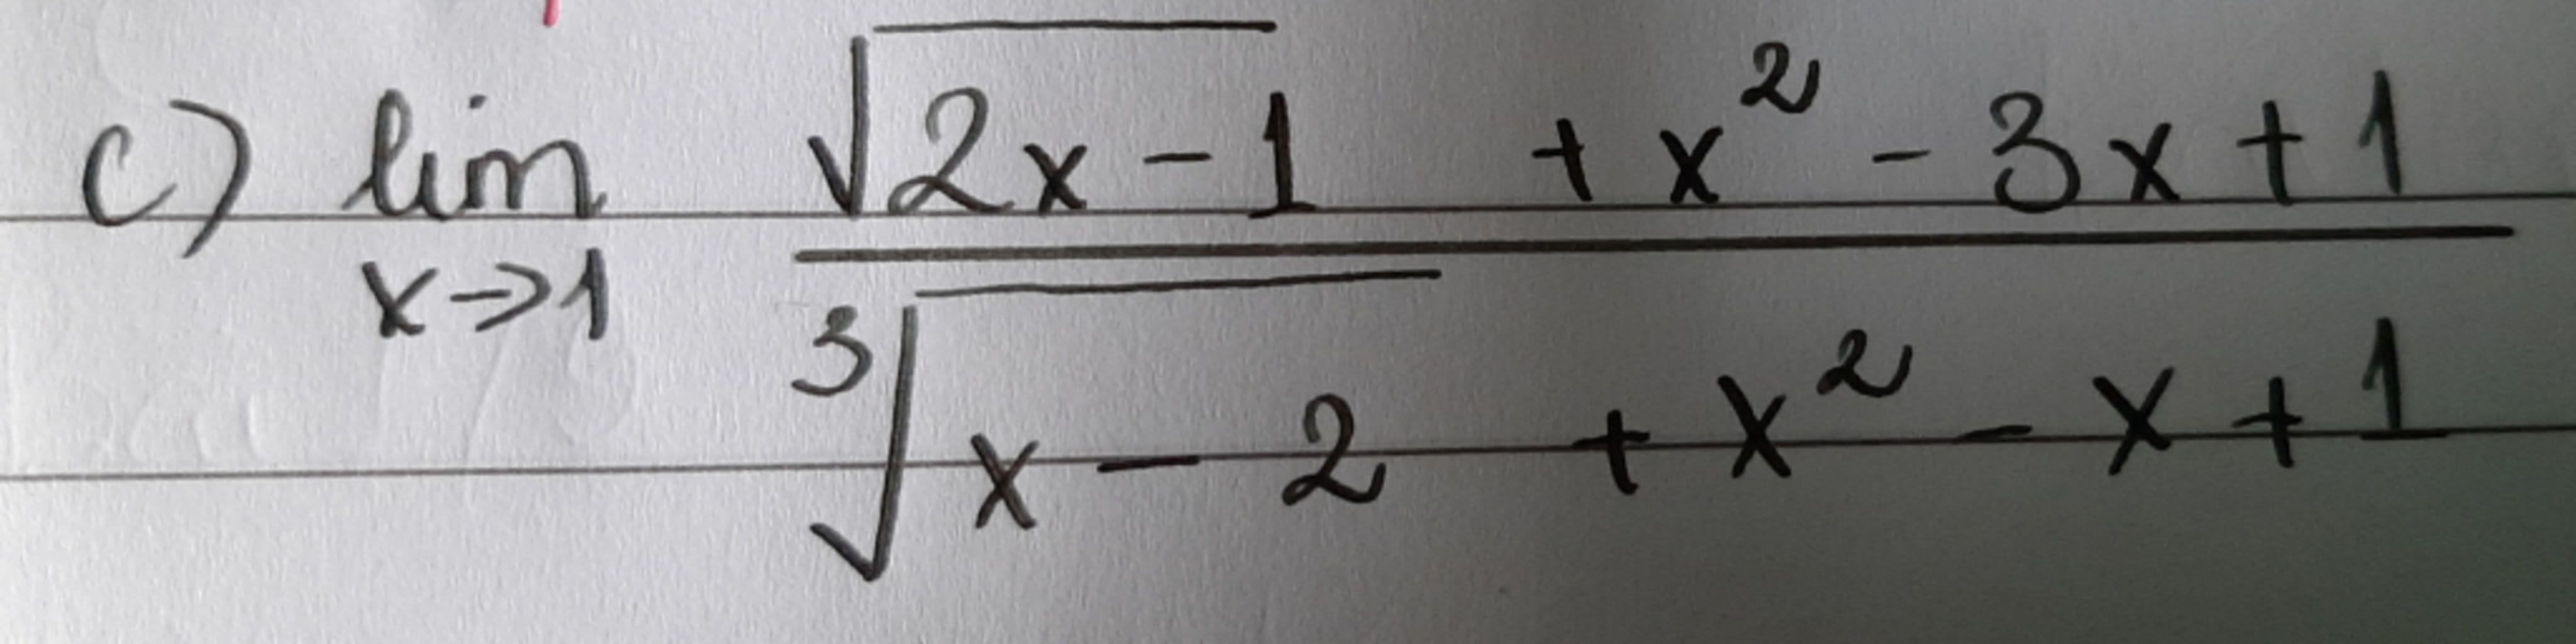 c) lim x→1 (√(2x-1) + x² - 3x + 1) / (∛(x-2) + x² - x + 1)